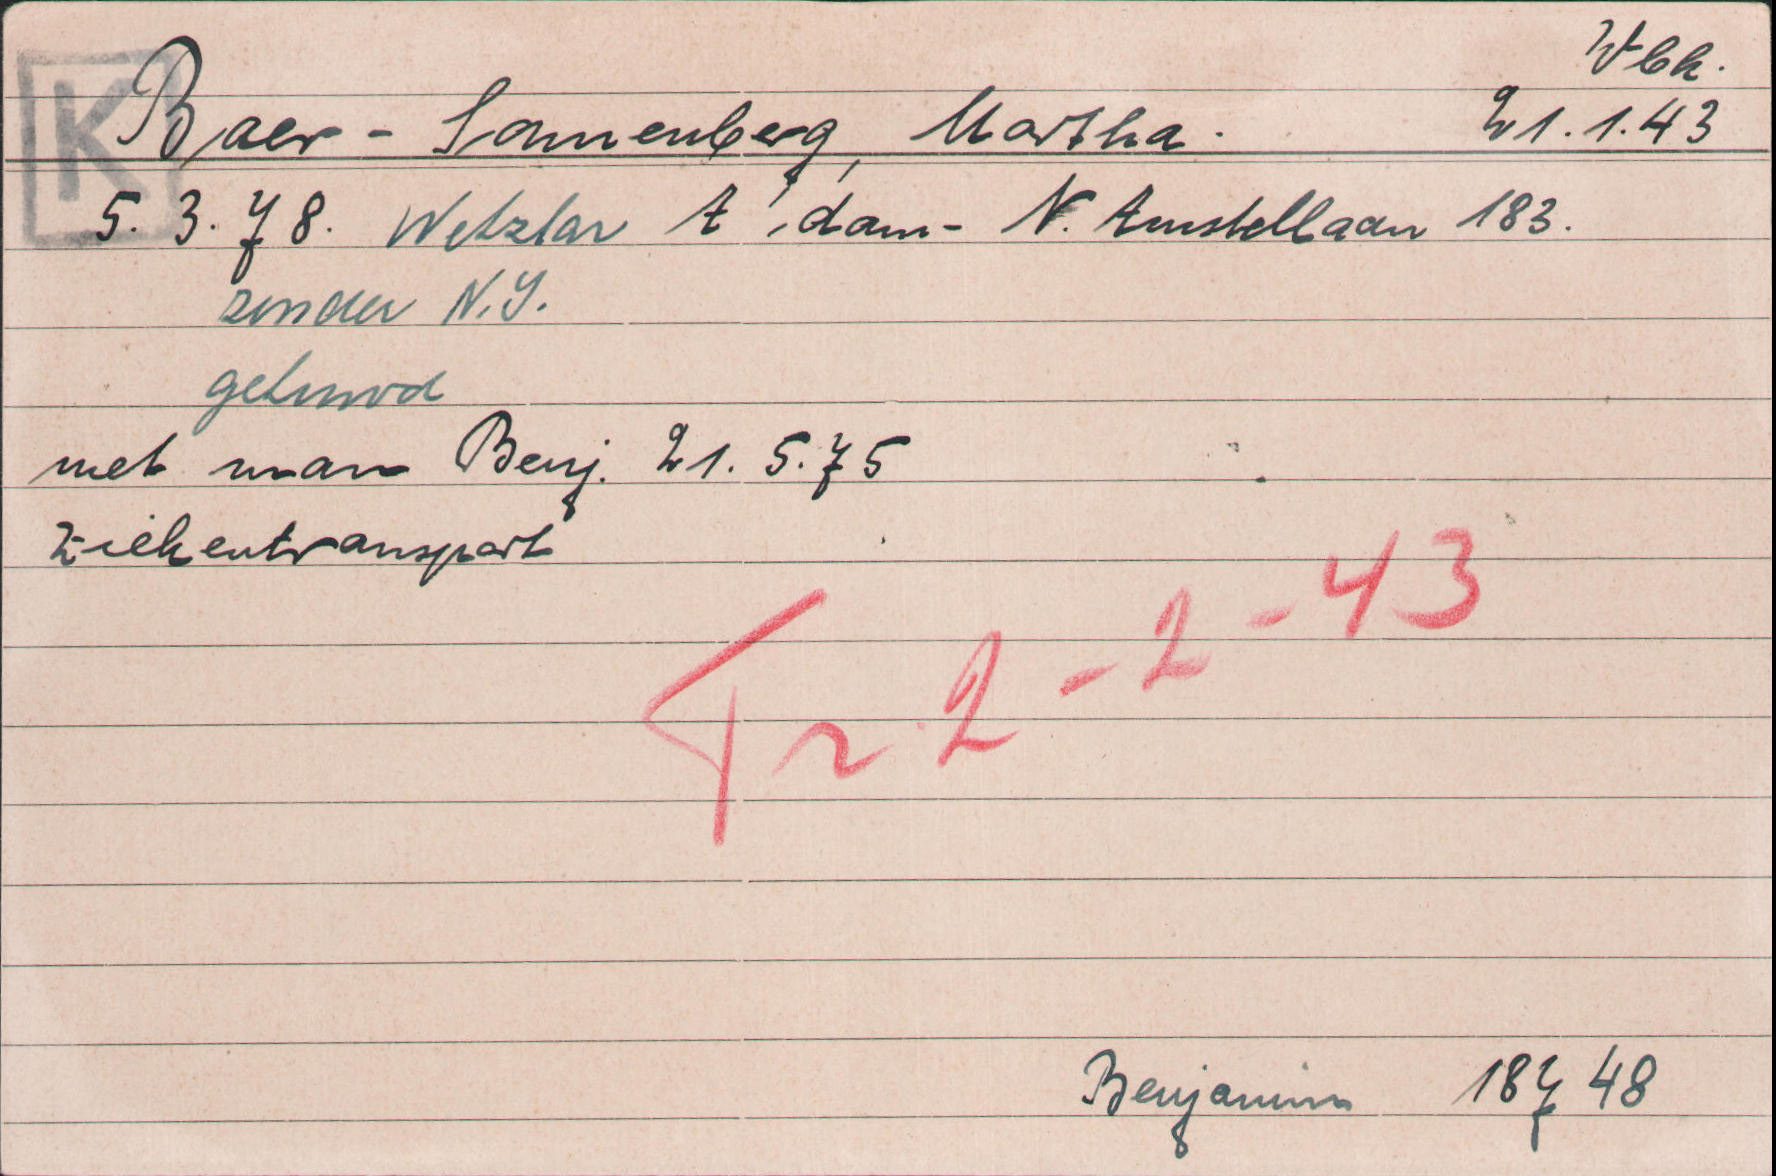 Wbk.
K
Baer - Sonnenberg, Martha.
21.1.43
5.3.78. Wetzlar A'dam - N. Amstellaan 183.
zonder N.Y.
getrouwd
met man Benj. 21.5.75
Ziekentransport
Tr. 2-2-43
Benjamin 18748